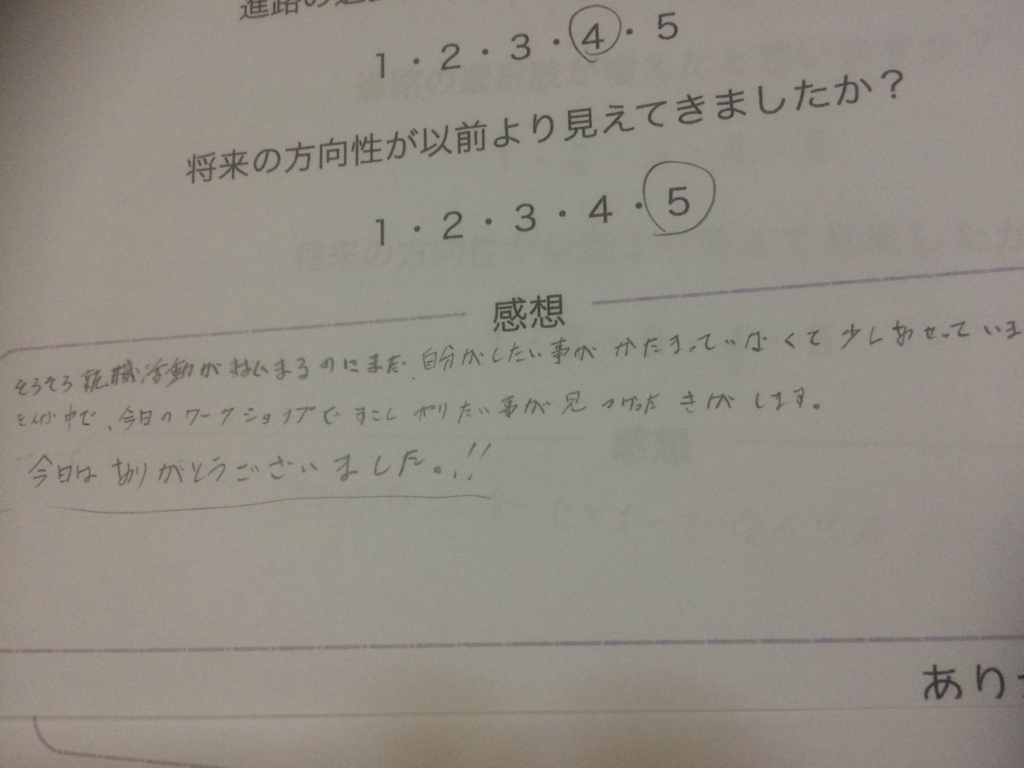 進路の選
1・2・3・4・5
将来の方向性が以前より見えてきましたか？
1・2・3・4・5
感想
そろそろ就職活動がはじまるのにまだ、自分がしたい事がかたまっていなくて少しあせっていま
そんな中で、今日のワークショップですこしやりたい事が見つかった きがします。
今日はありがとうございました。!!
あり